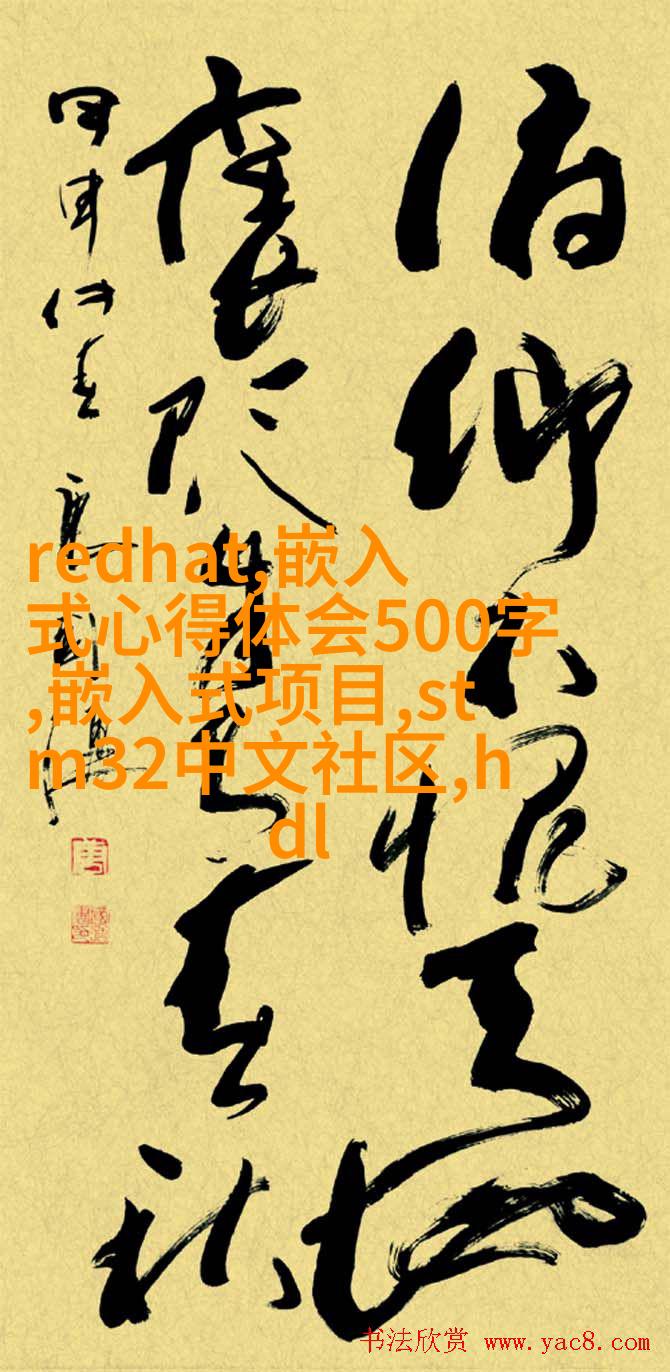 俯仰不愧天地
褒贬自有春秋
redhat,嵌入
式心得体会500字
,嵌入式项目,st
m32中文社区,h
dl
书法欣赏 www.yac8.com